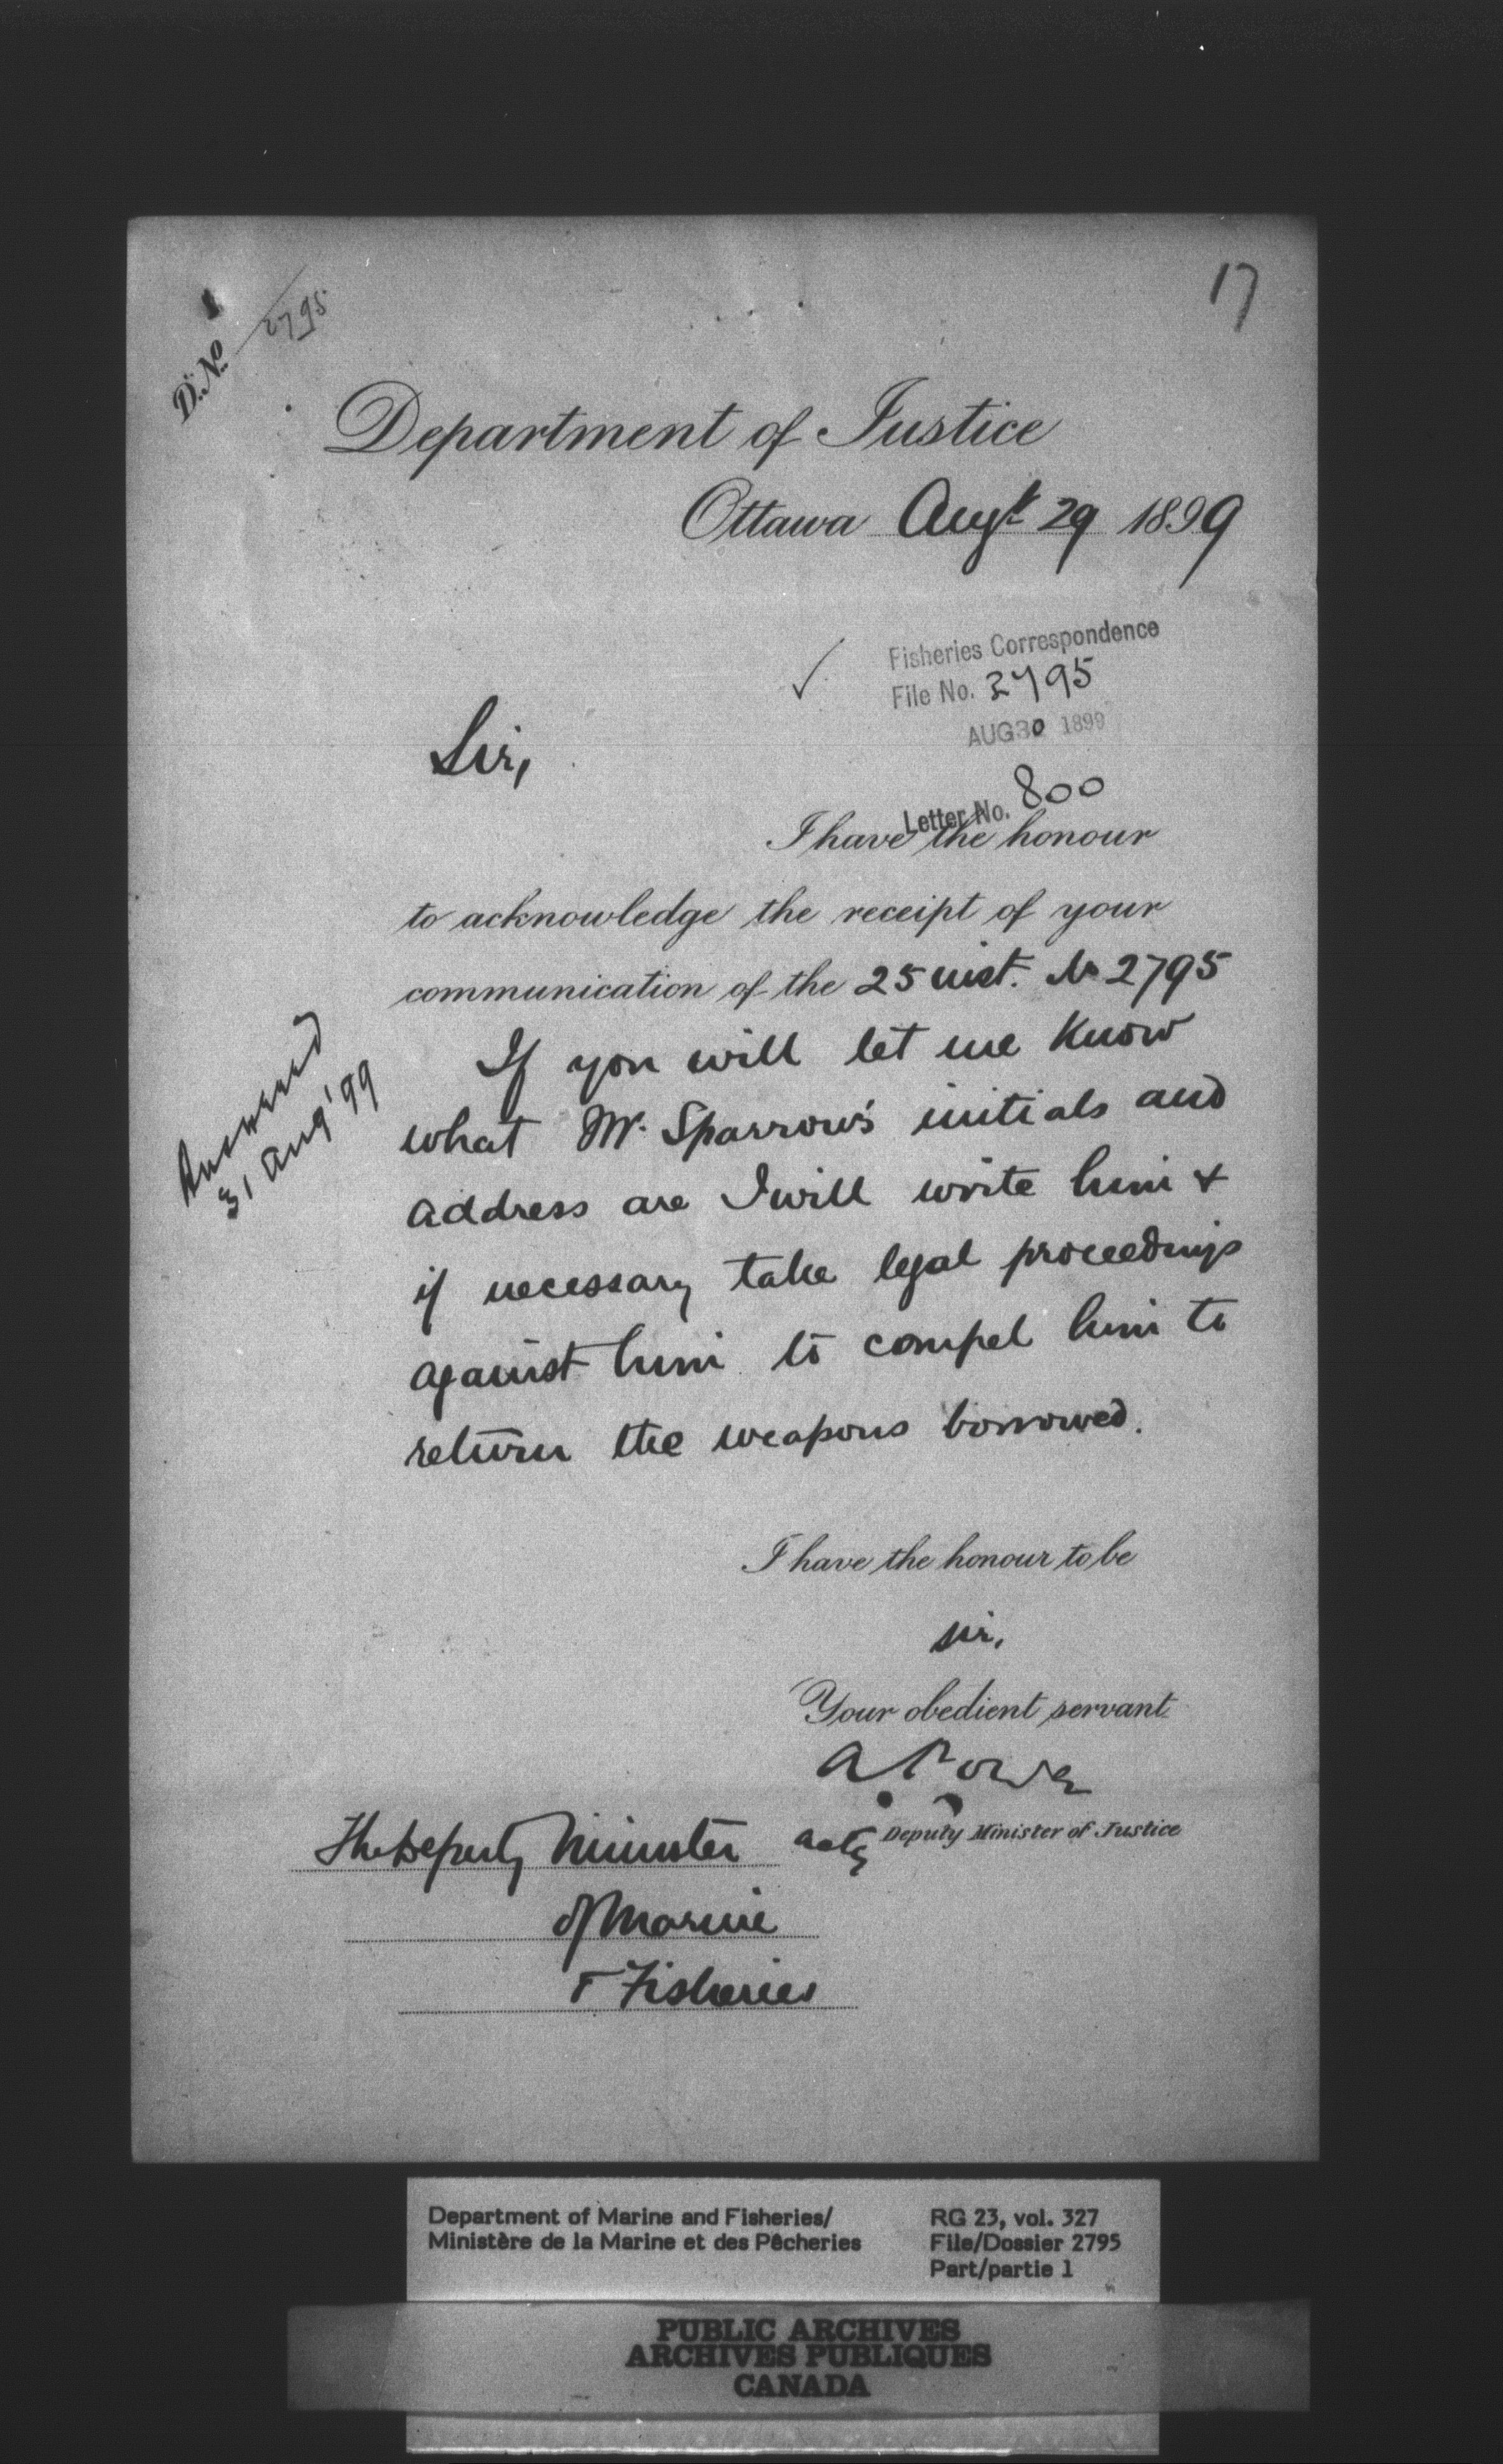 17
D. No 2795
Department of Justice
Ottawa Augt 29 1899
Fisheries Correspondence
File No. 2795
AUG 30 1899
Letter No. 800
Sir,
I have the honour
to acknowledge the receipt of your
communication of the 25 inst. No 2795
If you will let me know
what Mr. Sparrow's initials and
address are I will write him &
if necessary take legal proceedings
against him to compel him to
return the weapons borrowed.
Answered
31 Aug '99
I have the honour to be
sir,
Your obedient servant
A Power
actg Deputy Minister of Justice
The Deputy Minister
of Marine
& Fisheries
Department of Marine and Fisheries/
Ministère de la Marine et des Pêcheries
RG 23, vol. 327
File/Dossier 2795
Part/partie 1
PUBLIC ARCHIVES
ARCHIVES PUBLIQUES
CANADA